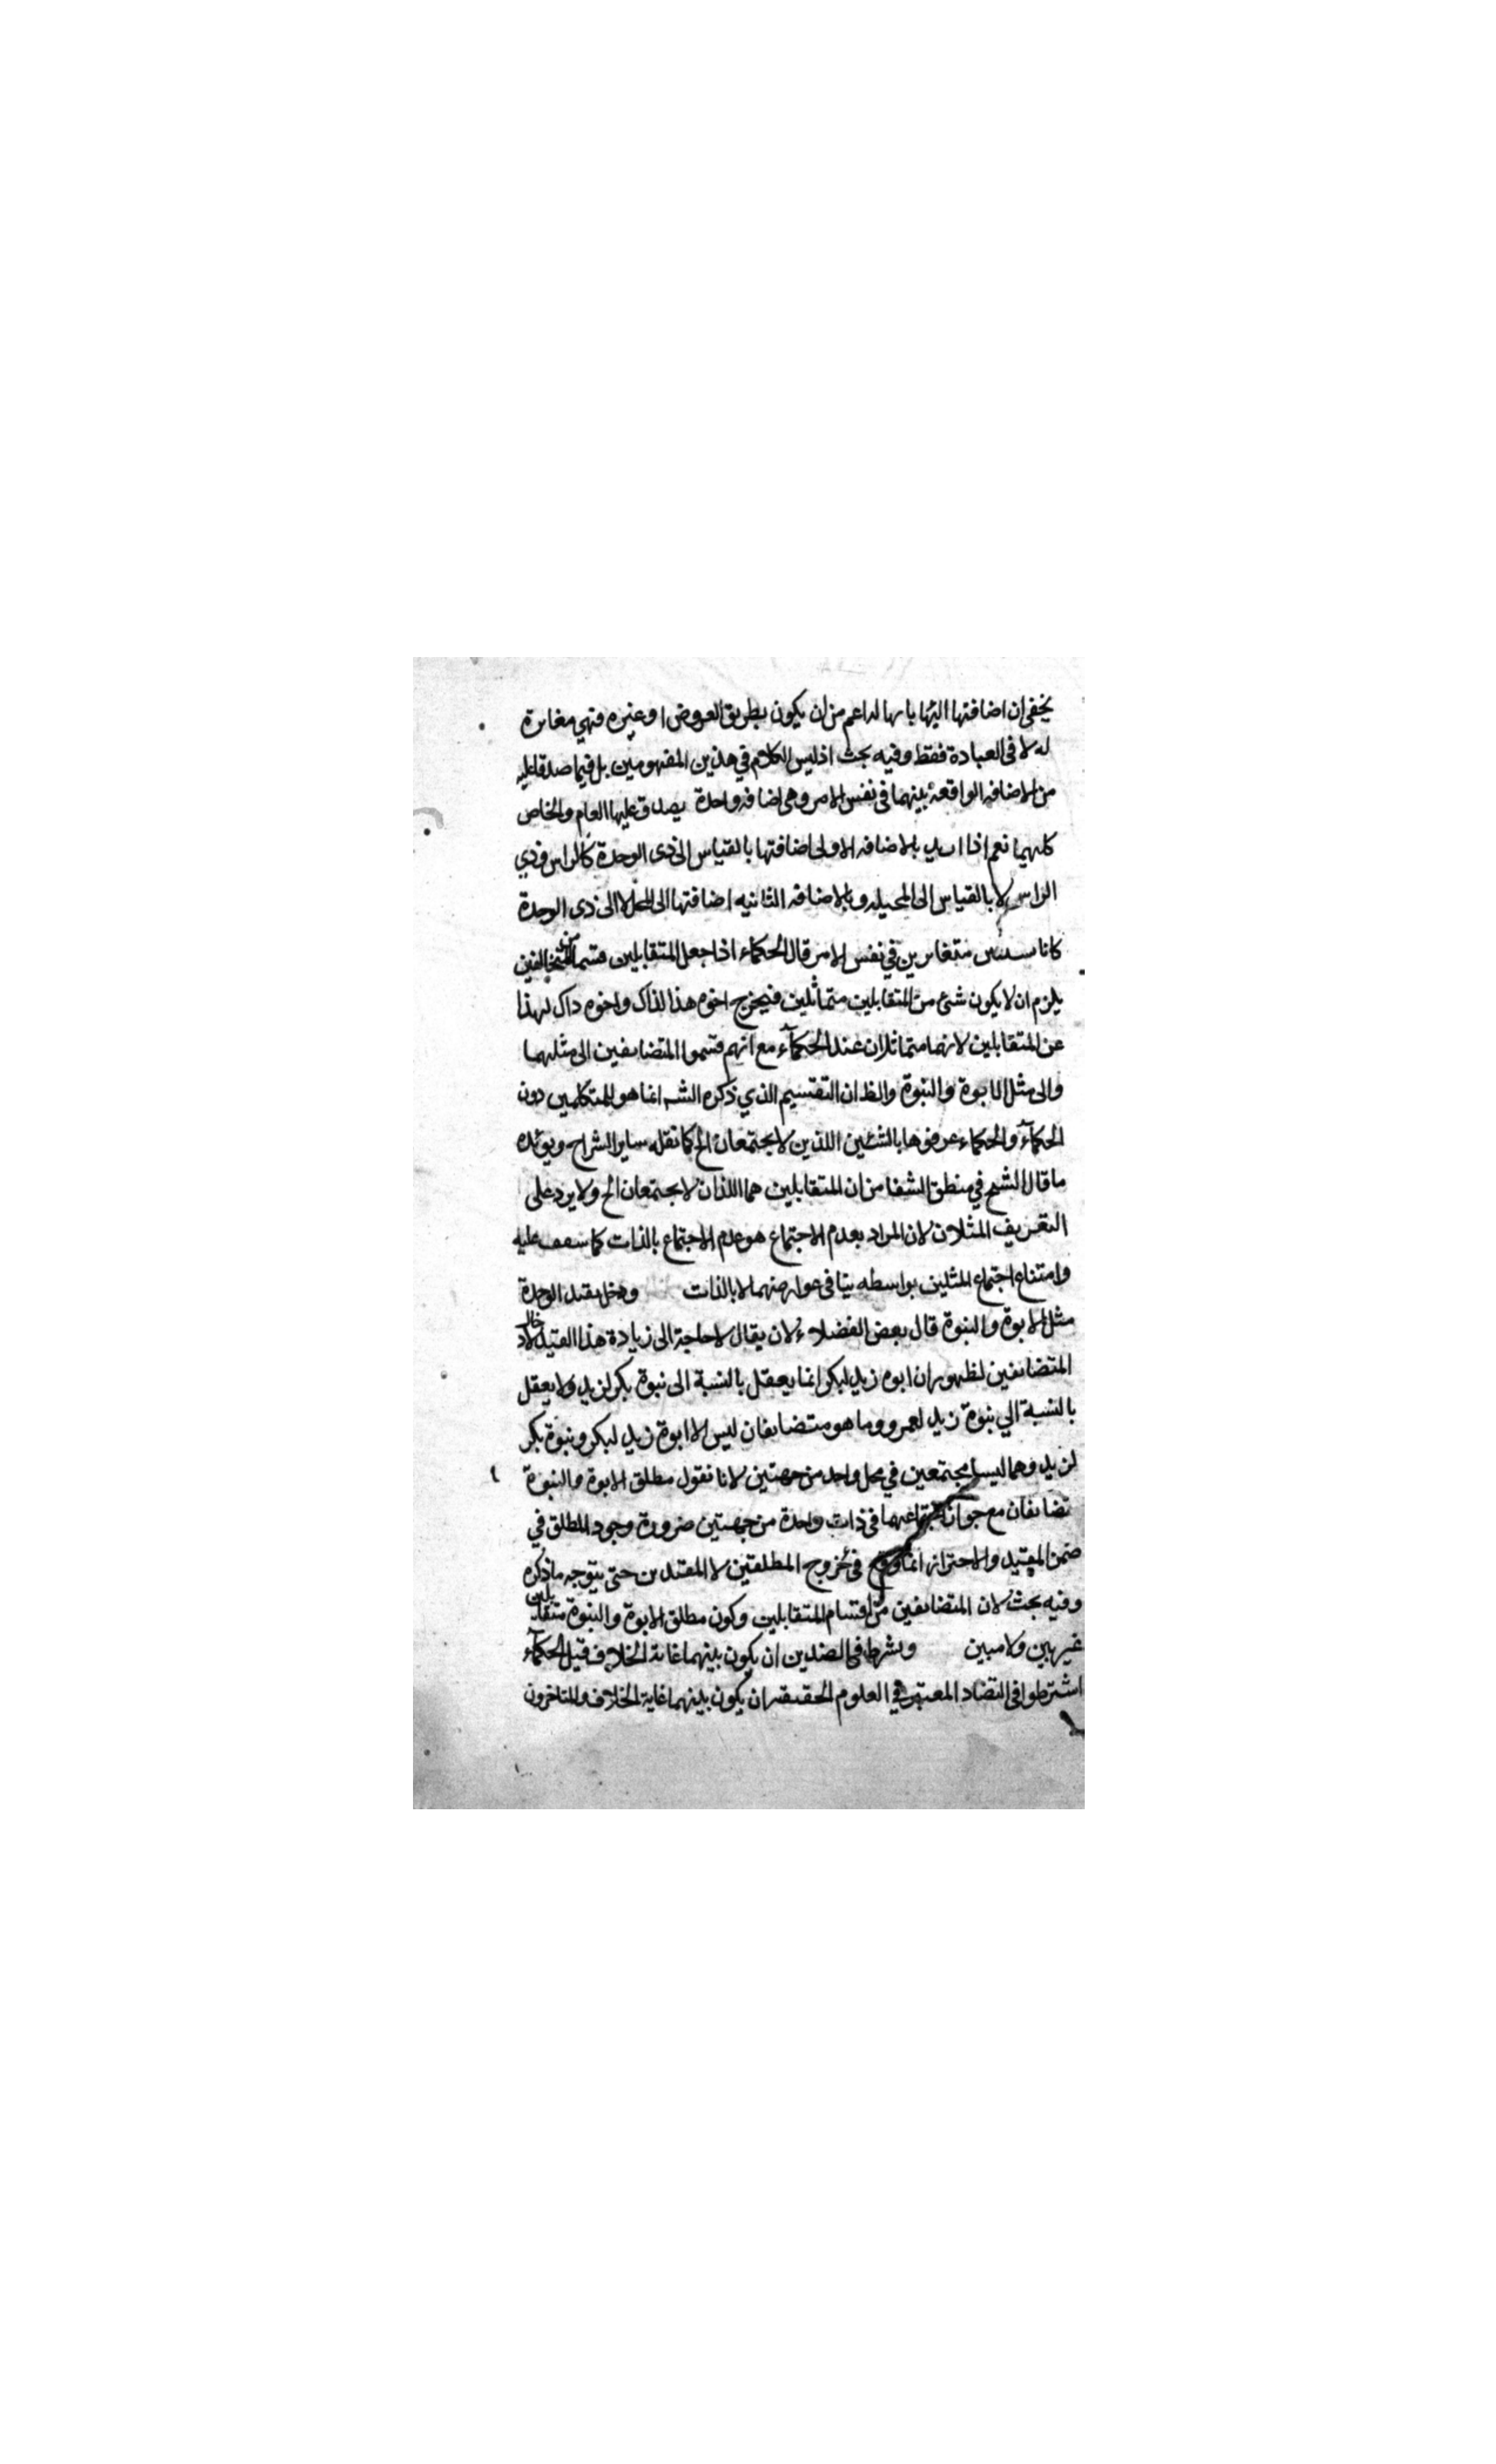 يخفى ان اضافتها اليها بانها لها اعم من ان يكون بطريق العروض او غيره فهي مغايرة
له لا فى العبادة فقط وفيه بحث اذ ليس الكلام في هذين المفهومين بل فيما صدقا عليه
من الاضافه الواقعة بينهما فى نفس الامر وهى اضافه واحدة يصدق عليها العام والخاص
كليهما نعم اذا اريد بالاضافه الاولى اضافتها بالقياس الى ذى الوحدة كالراس وذي
الراس لا بالقياس الى المحل له وبالاضافه الثانيه اضافتها الى المحل لا الى ذى الوحدة
كانا متغايرين في نفس الامر قال الحكماء اذا جعل المتقابلين قسما من المتخالفين
يلزم ان لا يكون شئ من المتقابلين متماثلين فيخرج اخوه هذا لذاك واخوه داك لهذا
عن المتقابلين لانهما متماثلان عند الحكمآء مع انهم قسموا المتضايفين الى مثلهما
والى مثل الابوة والبنوة والظ ان التقسيم الذي ذكره الشه انما هو للمتكلمين دون
الحكمآء والحكماء عرفوها بالشئين اللذين لا يجتمعان الخ كما نقله ساير الشراح ويؤيده
ما قال الشيخ في منطق الشفا من ان المتقابلين هما اللذان لا يجتمعان الخ ولا يرد على
التعريف المثلان لان المراد بعدم الاجتماع هو عدم الاجتماع بالذات كما ستقف عليه
وامتناع اجتماع المثلين بواسطه تنافى عوارضهما لا بالذات ودخل بقيد الوحدة
مثل الابوة والبنوة قال بعض الفضلاء لان يقال لا حاجة الى زيادة هذا القيد لادخال
المتضايفين لظهور ان ابوه زيد لبكر انما يعقل بالنسبة الى بنوة بكر لزيد ولا يعقل
بالنسبة الي بنوة زيد لعمرو وما هو متضايفان ليس الا ابوة زيد لبكر وبنوة بكر
لزيد وهما ليسا مجتمعين في محل واحد من جهتين لانا نقول مطلق الابوة والبنوة
تضايفان مع جواز اجتماعهما فى ذات واحدة من جهتين ضرورة وجود المطلق في
ضمن المقيد والاحتراز انما وقع فى خروج المطلقين لا المقيدين حتى يتوجه ما ذكره
وفيه بحث لان المتضايفين من اقسام المتقابلين وكون مطلق الابوة والبنوة متقابلين
غير بين ولا مبين ويشرط فى الضدين ان يكون بينهما غاية الخلاف قيل الحكمآء
اشترطوا فى التضاد المعتبر في العلوم الحقيقه ان يكون بينهما غاية الخلاف والمتاخرون